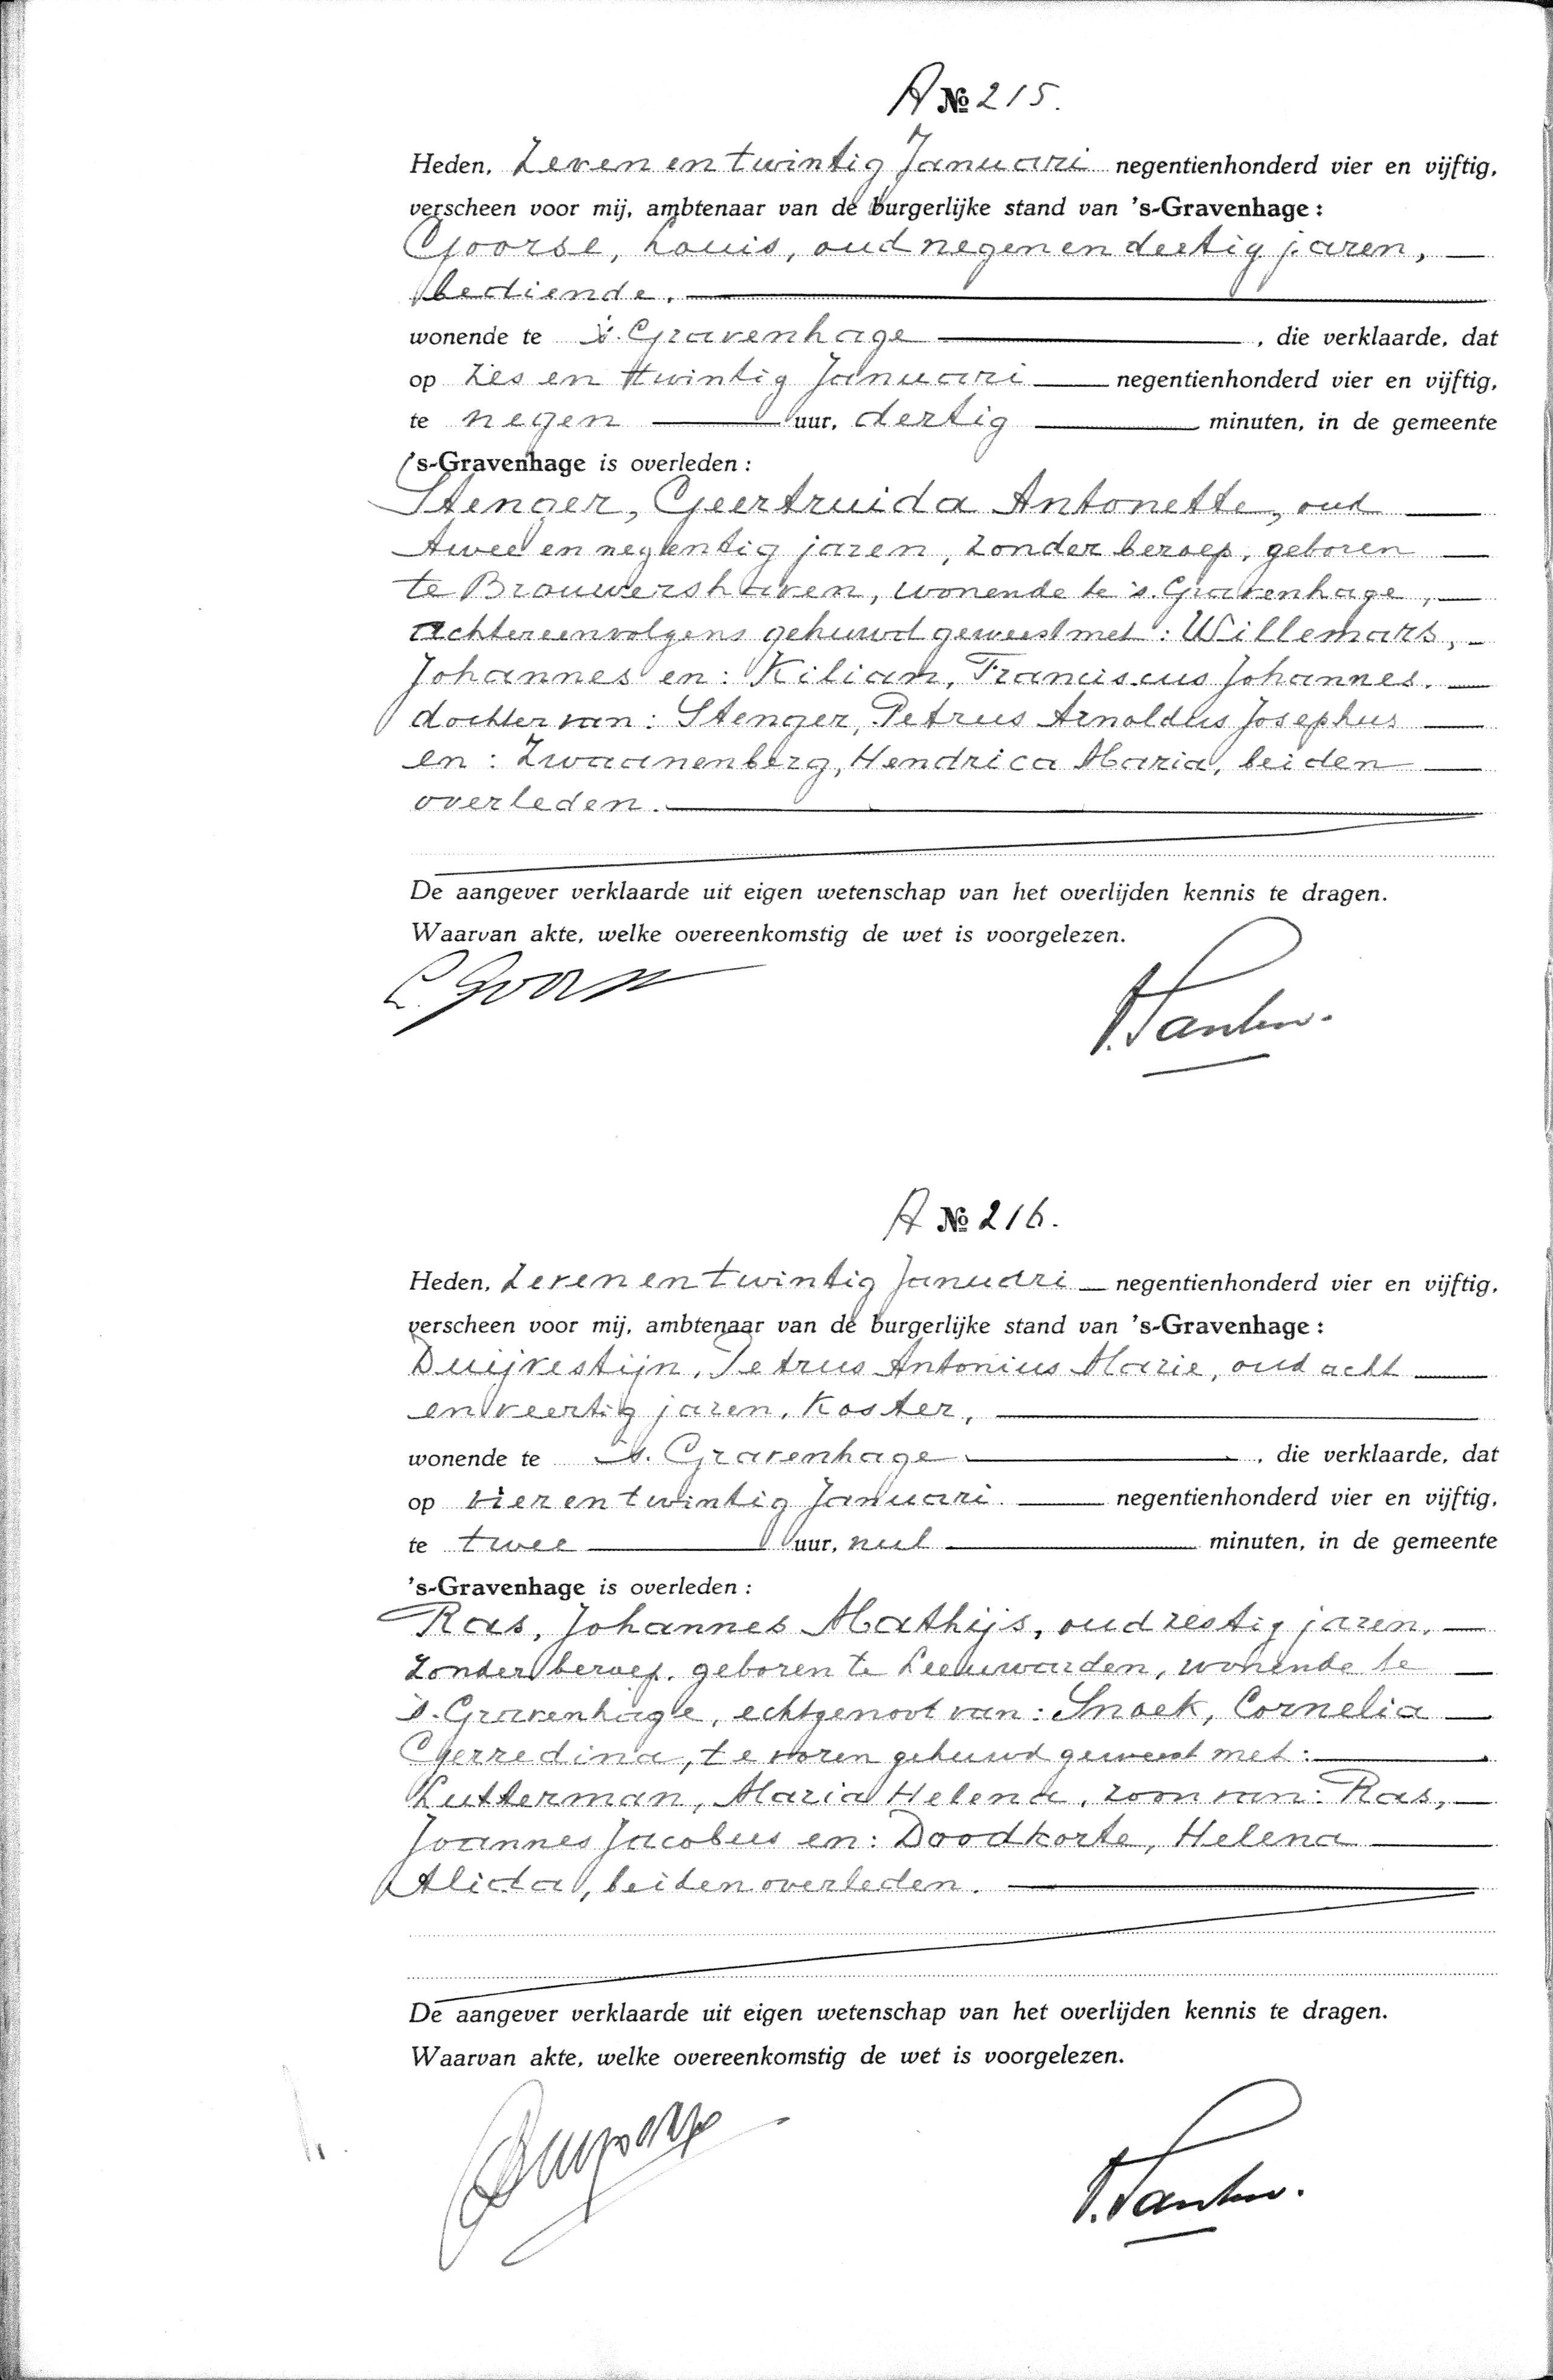 A № 215.
Heden, Zeven en twintig Januari negentienhonderd vier en vijftig,
verscheen voor mij, ambtenaar van de burgerlijke stand van 's-Gravenhage:
Goorse, Louis, oud negen en dertig jaren,
bediende,
wonende te 's-Gravenhage, die verklaarde, dat
op zes en twintig Januari negentienhonderd vier en vijftig,
te negen uur, dertig minuten, in de gemeente
's-Gravenhage is overleden:
Stenger, Geertruida Antonette, oud
twee en negentig jaren, zonder beroep, geboren
te Brouwershaven, wonende te 's-Gravenhage,
achtereenvolgens gehuwd geweest met: Willemars,
Johannes en: Kiliam, Franciscus Johannes,
dochter van: Stenger, Petrus Arnoldus Josephus
en: Zwaanenberg, Hendrica Maria, beiden
overleden.
De aangever verklaarde uit eigen wetenschap van het overlijden kennis te dragen.
Waarvan akte, welke overeenkomstig de wet is voorgelezen.
A № 216.
Heden, Zeven en twintig Januari negentienhonderd vier en vijftig,
verscheen voor mij, ambtenaar van de burgerlijke stand van 's-Gravenhage:
Duijvestijn, Petrus Antonius Marie, oud acht
en veertig jaren, koster,
wonende te 's-Gravenhage, die verklaarde, dat
op vier en twintig Januari negentienhonderd vier en vijftig,
te twee uur, nul minuten, in de gemeente
's-Gravenhage is overleden:
Ras, Johannes Mathijs, oud zestig jaren,
zonder beroep, geboren te Leeuwarden, wonende te
's-Gravenhage, echtgenoot van: Snoek, Cornelia
Gerredina, te voren gehuwd geweest met:
Lutterman, Maria Helena, zoon van: Ras,
Joannes Jacobus en: Doodkorte, Helena
Alida, beiden overleden.
De aangever verklaarde uit eigen wetenschap van het overlijden kennis te dragen.
Waarvan akte, welke overeenkomstig de wet is voorgelezen.